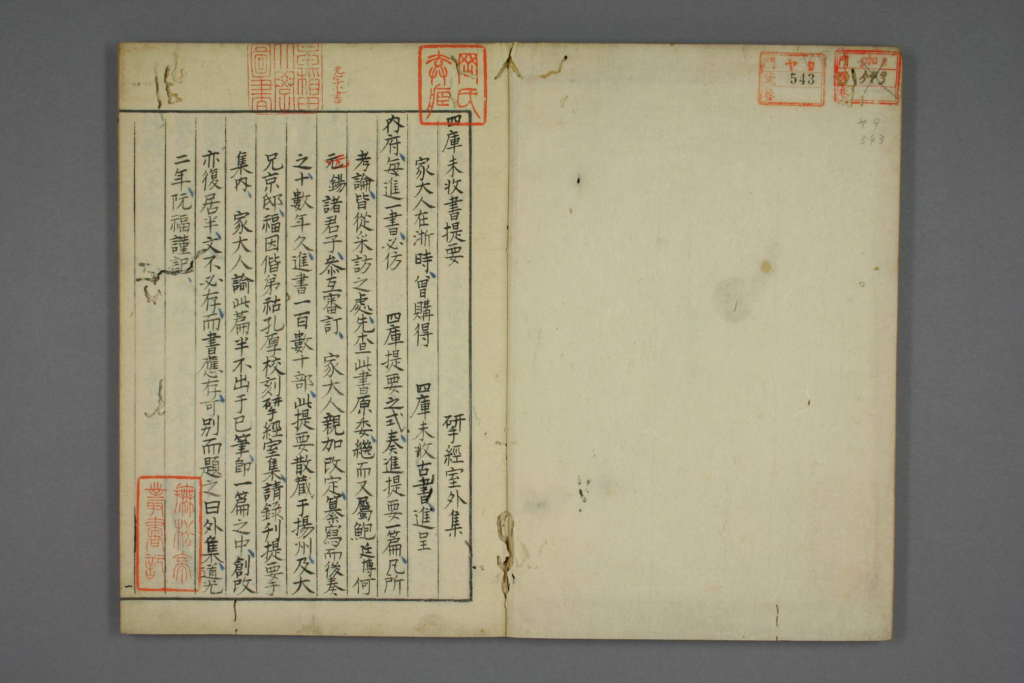 ヤ 9
543
543
ヤ 9
543
四庫未收書提要 揅經室外集
家大人在浙時、曾購得 四庫未收古書、進呈
內府、每進一書、必仿 四庫提要之式、奏進提要一篇、凡所
考論、皆從采訪之處、先查此書原委、繼而又屬鮑廷博何
元錫諸君子、叅互審訂、 家大人親加改定、纂寫而後奏
之、十數年久、進書一百數十部、此提要散藏于揚州、及大
兄京邸、福因偕弟祜孔厚校刻揅經室集、請錄刊提要于
集內、 家大人諭此篇半不出于己筆、卽一篇之中、創改
亦復居半、文不必存、而書應存、可別而題之曰外集、道光
二年、阮福謹記、